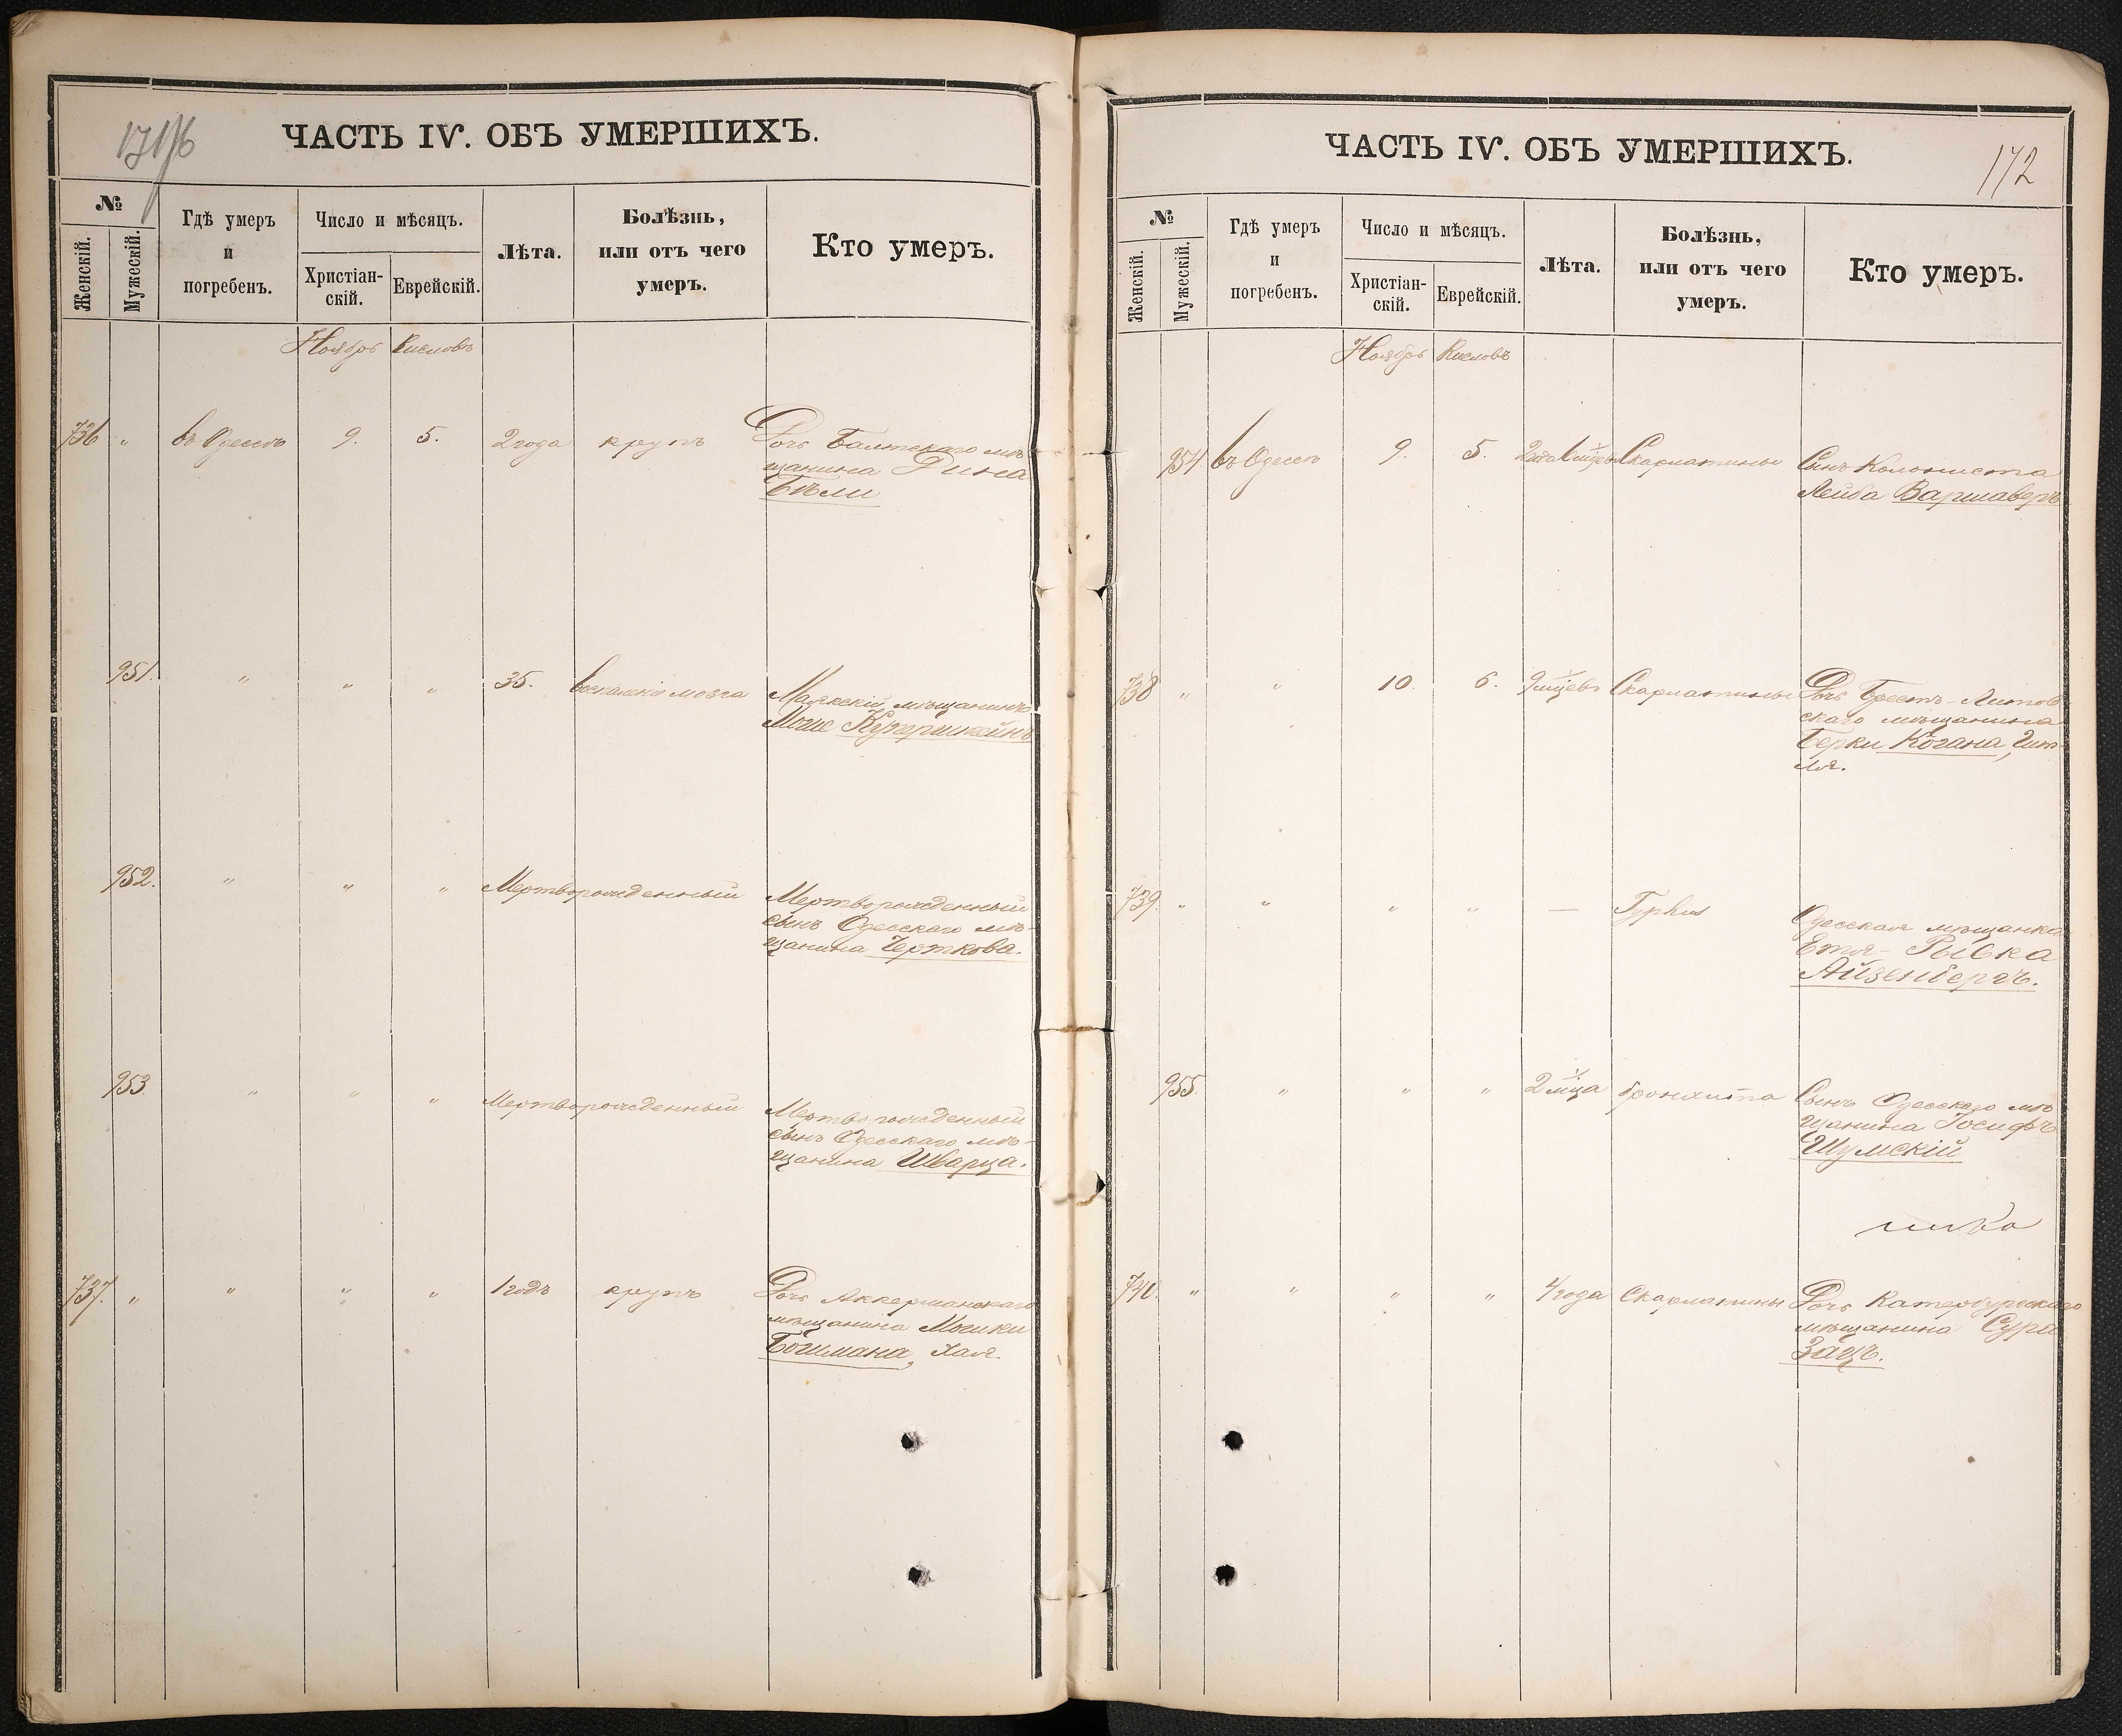 171/6
ЧАСТЬ IV. ОБЪ УМЕРШИХЪ.
№
Женскій.
Мужескій.
Гдѣ умеръ
и
погребенъ.
Число и мѣсяцъ.
Христіан-
скій.
Еврейскій.
Лѣта.
Болѣзнь,
или отъ чего
умеръ.
Кто умеръ.
Ноябрь Кислевъ
736 " въ Одессѣ 9. 5. 2 года крупъ Дочь Балтскаго мѣ-
щанина Рина
Бѣли
951. " " " 35. воспаленіе мозга Маякскій мѣщанинъ
Моше Куперштейнъ
952. " " " Мертворожденный Мертворожденный
сынъ Одесскаго мѣ-
щанина Черткова.
953 " " " Мертворожденный Мертворожденный
сынъ Одесскаго мѣ-
щанина Шварца.
737. " " " " 1 годъ крупъ Дочь Аккерманскаго
мѣщанина Мошки
Бошмана, Хая.
ЧАСТЬ IV. ОБЪ УМЕРШИХЪ.
172
№
Женскій.
Мужескій.
Гдѣ умеръ
и
погребенъ.
Число и мѣсяцъ.
Христіан-
скій.
Еврейскій.
Лѣта.
Болѣзнь,
или отъ чего
умеръ.
Кто умеръ.
Ноябрь Кислевъ
954 въ Одессѣ 9. 5. 2 года мцевъ Скарлатины Сынъ Колониста
Лейба Варшаверъ
738 " " 10. 6. 9 мцевъ Скарлатины Дочь Брестъ-Литов
скаго мѣщанина
Берки Когана, Гит-
ля.
739. " " " " — Typhus Одесская мѣщанка
Етя-Рывка
Айзенбергъ.
955 " " " 2 мца бронхита Сынъ Одесскаго мѣ
щанина Іосифъ
Шумскій
740. " " " " 4 года Скарлатины Дочь Катербургскаго
мѣщанина Сура
Зацъ.